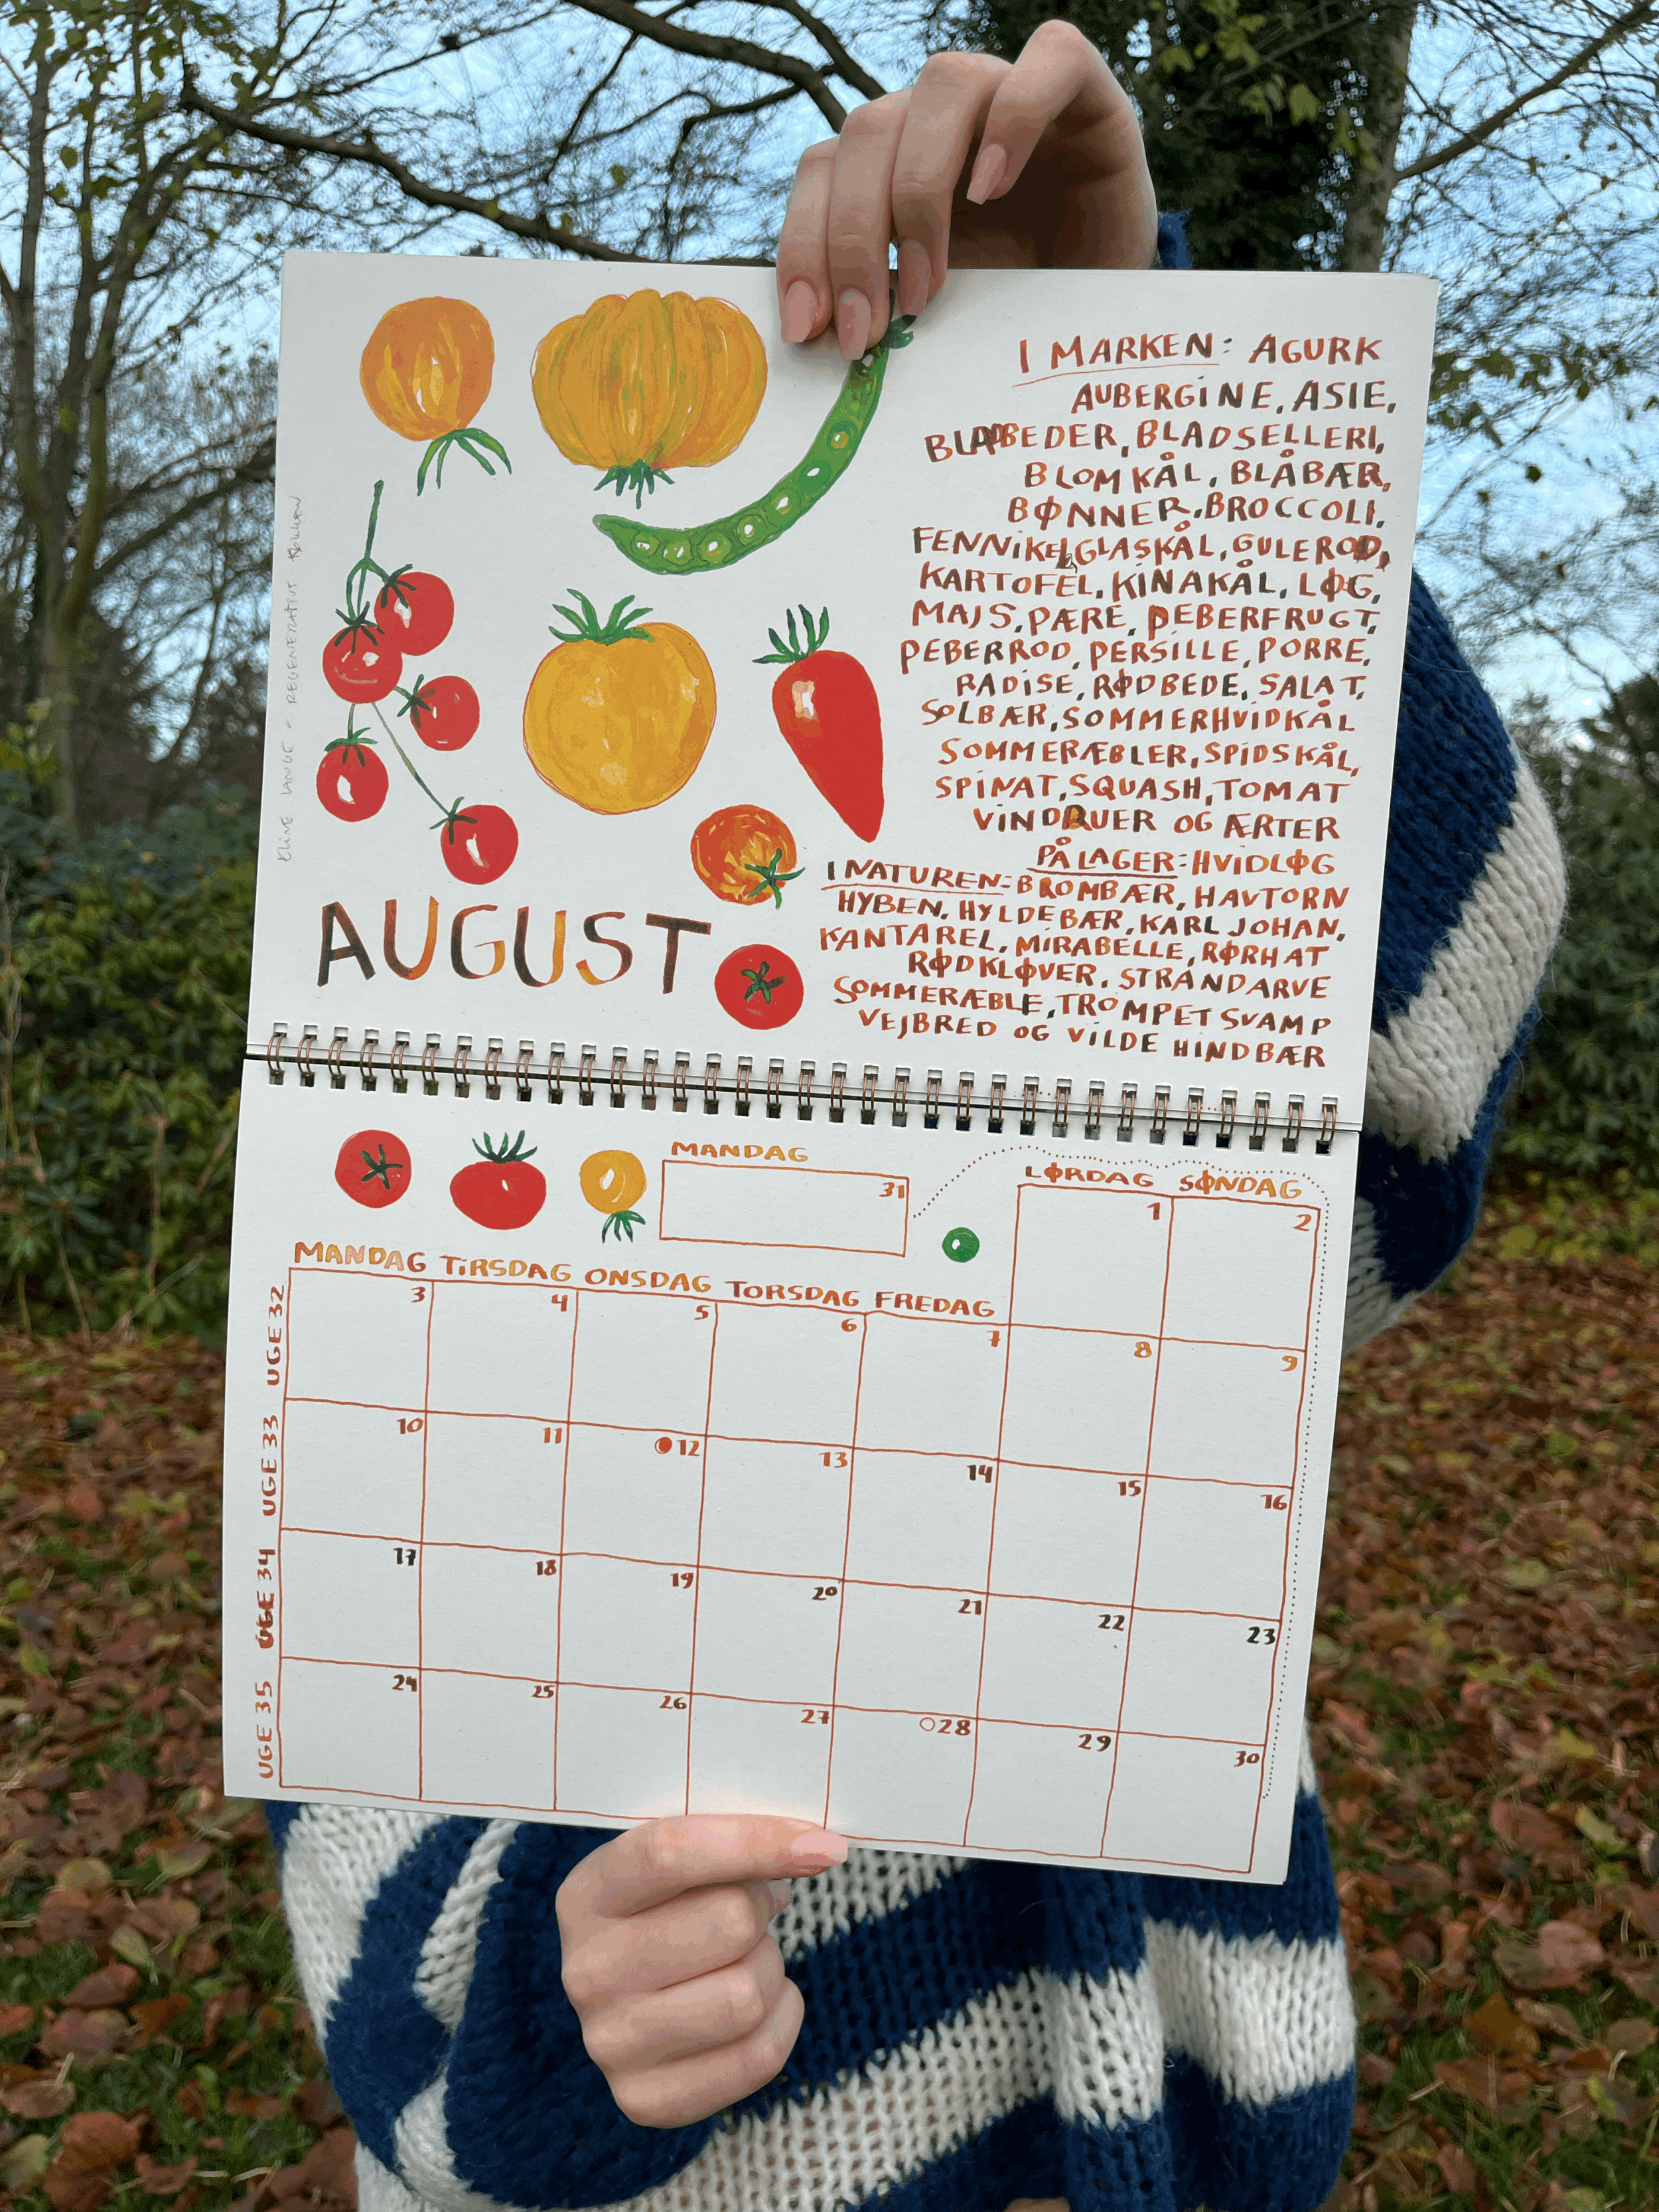 I MARKEN: AGURK
AUBERGINE, ASIE,
BLADBEDER, BLADSELLERI,
BLOMKÅL, BLÅBÆR,
BØNNER, BROCCOLI,
FENNIKEL, GLASKÅL, GULEROD,
KARTOFEL, KINAKÅL, LØG,
MAJS, PÆRE, PEBERFRUGT,
PEBERROD, PERSILLE, PORRE,
RADISE, RØDBEDE, SALAT,
SOLBÆR, SOMMERHVIDKÅL
SOMMERÆBLER, SPIDSKÅL,
SPINAT, SQUASH, TOMAT
VINDRUER OG ÆRTER
PÅ LAGER: HVIDLØG
I NATUREN: BROMBÆR, HAVTORN
HYBEN, HYLDEBÆR, KARL JOHAN,
KANTAREL, MIRABELLE, RØRHAT
RØDKLØVER, STRANDARVE
SOMMERÆBLE, TROMPETSVAMP
VEJBRED OG VILDE HINDBÆR
LANGE - REGENERATIVT
AUGUST
MANDAG
31
LØRDAG SØNDAG
1 2
MANDAG TIRSDAG ONSDAG TORSDAG FREDAG
UGE 32 3 4 5 6 7 8 9
UGE 33 10 11 12 13 14 15 16
UGE 34 17 18 19 20 21 22 23
UGE 35 24 25 26 27 28 29 30